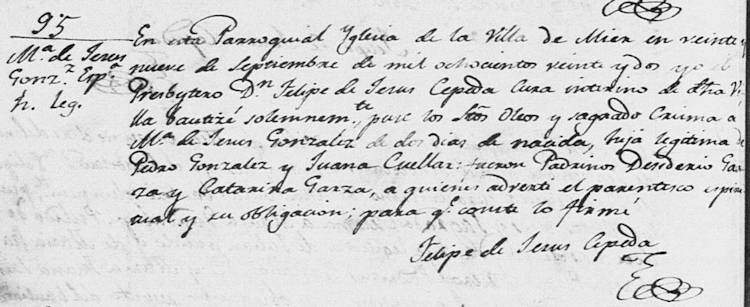 95
Mª. de Jesus
Gonz.z Espª
h. leg.
En esta Parroquial Yglesia de la Villa de Mier en veinte y
nueve de Septiembre de mil ochocientos veinte y dos yo el
Presbytero D.n Felipe de Jesus Cepeda Cura interino de dha Vi
lla bautizé solemnem.te puse los Stos Oleos y sagrado Crisma a
Mª. de Jesus Gonzalez de dos dias de nacida, hija legitima de
Pedro Gonzalez y Juana Cuellar: fueron Padrinos Desiderio Gar
za y Catarina Garza, a quienes advertí el parentesco espiri
tual y su obligacion; para q.e conste lo firmé
Felipe de Jesus Cepeda